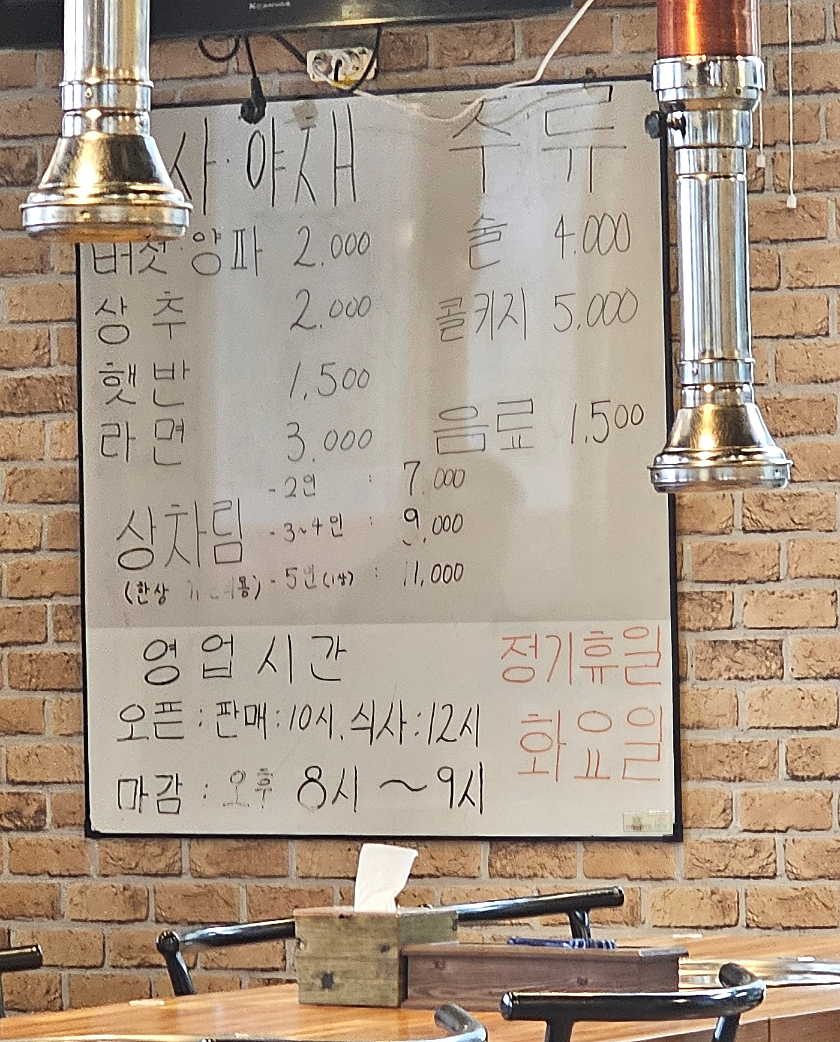 사·야채
버섯·양파 2.000
상추 2.000
햇반 1.500
라면 3.000
상차림
-2인 : 7.000
-3~4인 : 9.000
-5인(1상) : 11,000
(한상
주류
술 4.000
콜키지 5.000
음료 1.500
영업시간
오픈:판매:10시. 식사:12시
마감: 오후 8시~9시
정기휴일
화요일